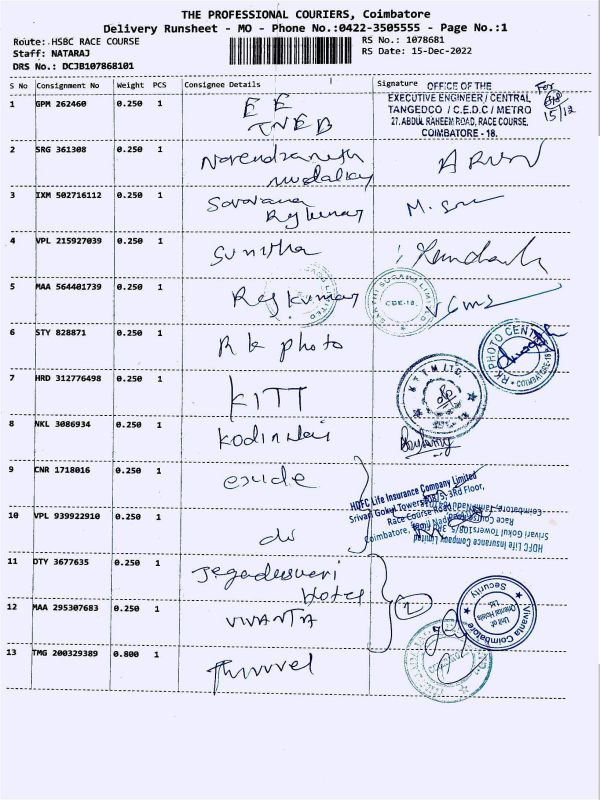 THE PROFESSIONAL COURIERS, Coimbatore
Delivery Runsheet - MO - Phone No.:0422-3505555 - Page No.:1
Route: HSBC RACE COURSE
RS No.: 1078681
Staff: NATARAJ
RS Date: 15-Dec-2022
DRS No.: DCJB107868101
S No Consignment No Weight PCS Consignee Details Signature
OFFICE OF THE
EXECUTIVE ENGINEER / CENTRAL
TANGEDCO / C.E.D.C / METRO
27, ABDUL RAHEEM ROAD, RACE COURSE,
COIMBATORE - 18.
For
15/12
1 GPM 262460 0.250 1 E E
TNEB
2 SRG 361308 0.250 1 Narendranath
mudaliay ARUN
3 IXM 502716112 0.250 1 Saravana
Rajkumar M.
4 VPL 215927039 0.250 1 Sunitha
5 MAA 564401739 0.250 1 Rajkumar
CBE-18.
6 STY 828871 0.250 1 R k photo
RK PHOTO CENTRE
COIMBATORE-18
7 HRD 312776498 0.250 1 KITT
8 NKL 3086934 0.250 1
9 CNR 1718016 0.250 1
HDFC Life Insurance Company Limited
Srivari Gokul Towers 108/5, 3rd Floor,
Race Course Road
Coimbatore, Tamil Nadu
HDFC Life Insurance Company Limited
Srivari Gokul Towers 108/5,
Race Course Road
Coimbatore, Tamilnadu
10 VPL 939922910 0.250 1 do
11 DTY 3677635 0.250 1 Jegadeswari
Hotel
2
12 MAA 295307683 0.250 1 VIVANTA
Vivanta Coimbatore
Unit of:
Oriental Hotels
Ltd.
Security
13 TMG 200329389 0.800 1